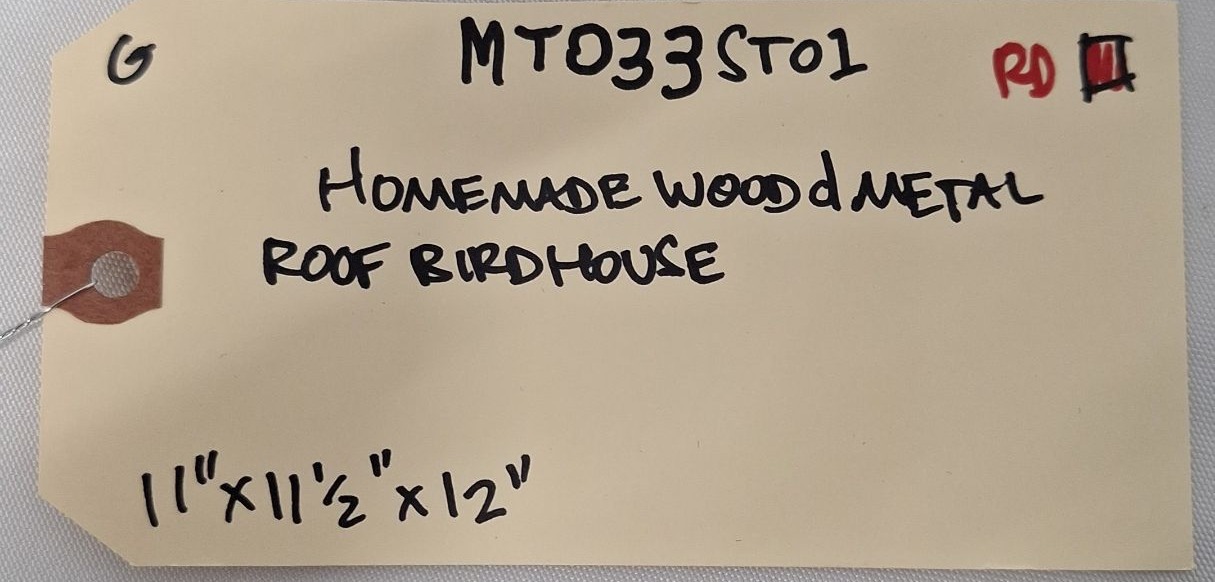 G MT033ST01 RD
HOMEMADE WOOD & METAL
ROOF BIRDHOUSE
11" x 11 1/2" x 12"